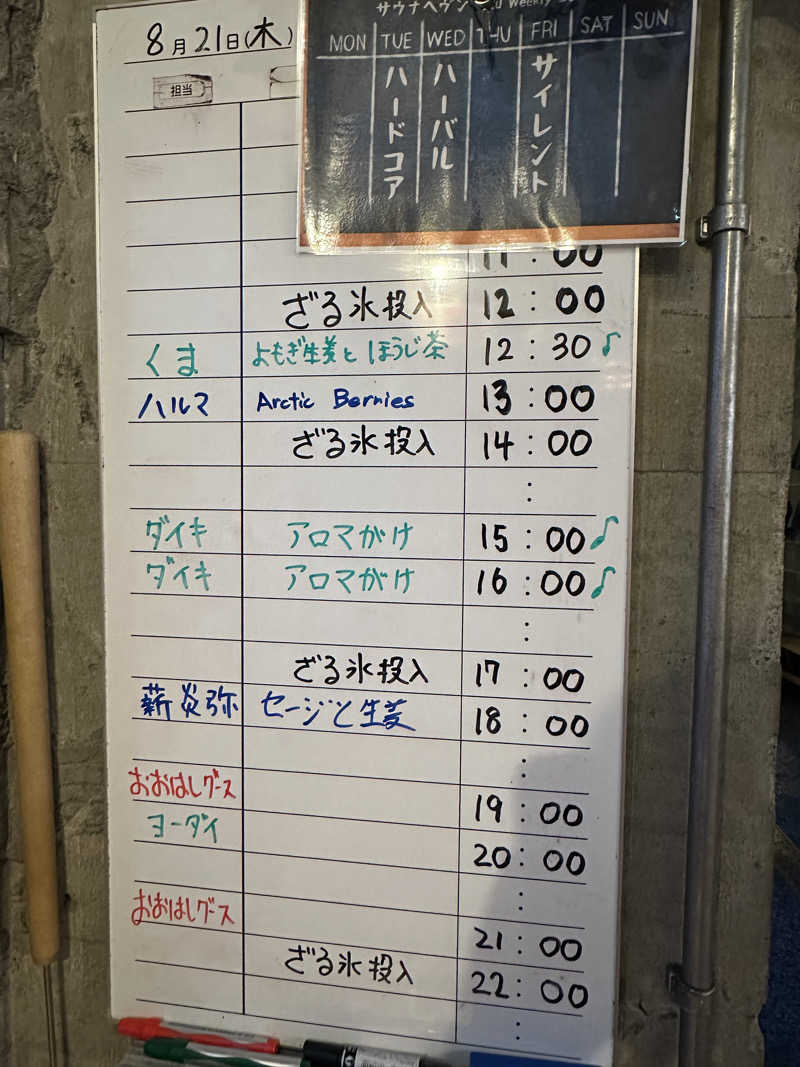 サウナヘヴン
Weekly
MON TUE WED THU FRI SAT SUN
ハードコア
ハーバル
サイレント
8月21日(木)
担当
11:00
ざる氷投入 12:00
くま よもぎ生姜とほうじ茶 12:30♪
ハルマ Arctic Berries 13:00
ざる氷投入 14:00
:
ダイキ アロマがけ 15:00♪
ダイキ アロマがけ 16:00♪
:
ざる氷投入 17:00
薪炎弥 セージと生姜 18:00
:
おおはしグース 19:00
ヨーダイ 20:00
:
おおはしグース 21:00
ざる氷投入 22:00
: